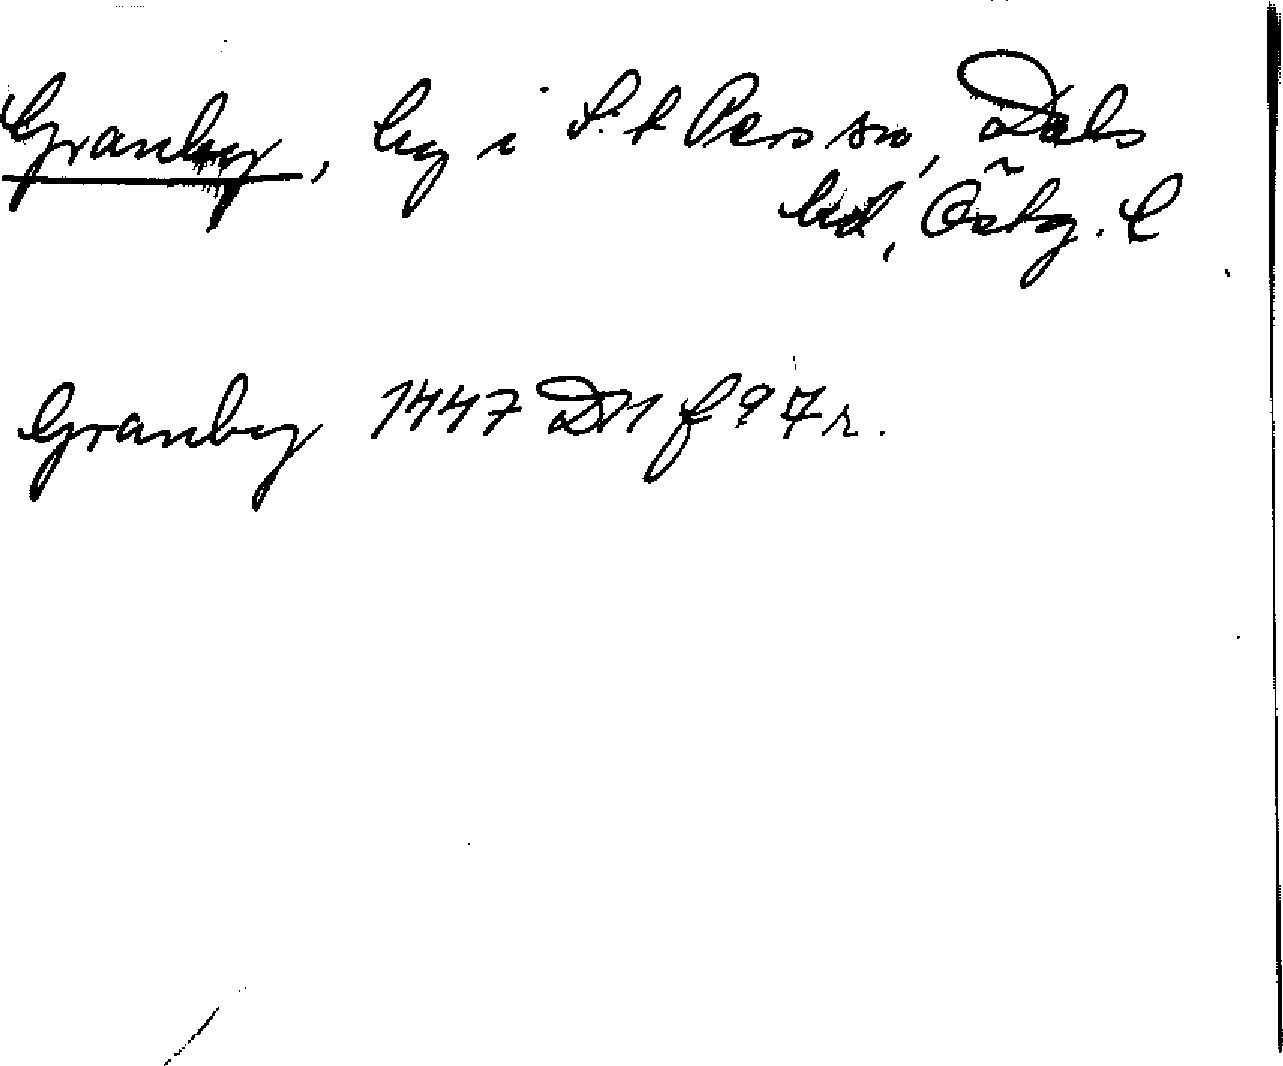 Granby, by i S:t Pers sn, Dals
hd, Östg. l
Granby 1447 DN f 97 r.